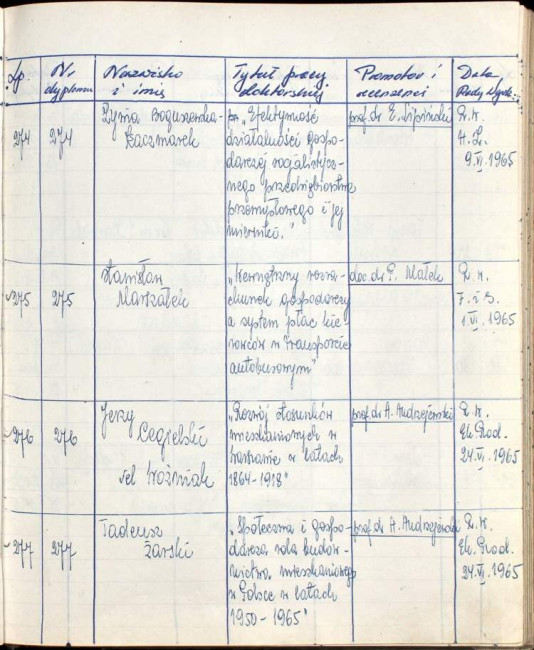 Lp. Nr dyplomu Nazwisko i imię Tytuł pracy doktorskiej Promotor i recenzenci Data Rady Wydz.
274 274
Boguszewska-
Kaczmarek
pt. „Efektywność
działalności gospo-
darczej socjalistycz-
nego przedsiębiorstwa
przemysłowego i jej
mierniki."
prof. dr E. Lipiński
R. W.
9.VI.1965
275 275
Stanisław
Marszałek
„Wewnętrzny rozra-
chunek gospodarczy
a system płac kie-
rowców w transporcie
autobusowym"
doc. dr P. Małek
R. W.
F. i S.
1.VI.1965
276 276
Jerzy
Cegielski
vel Woźniak
„Rozwój stosunków
mieszkaniowych w
Warszawie w latach
1864-1918"
prof. dr A. Andrzejewski
R. W.
Ek. Prod.
24.VI.1965
277 277
Tadeusz
Żarski
„Społeczna i gospo-
darcza rola budow-
nictwa mieszkaniowego
w Polsce w latach
1950-1965"
prof. dr A. Andrzejewski
R. W.
Ek. Prod.
24.VI.1965